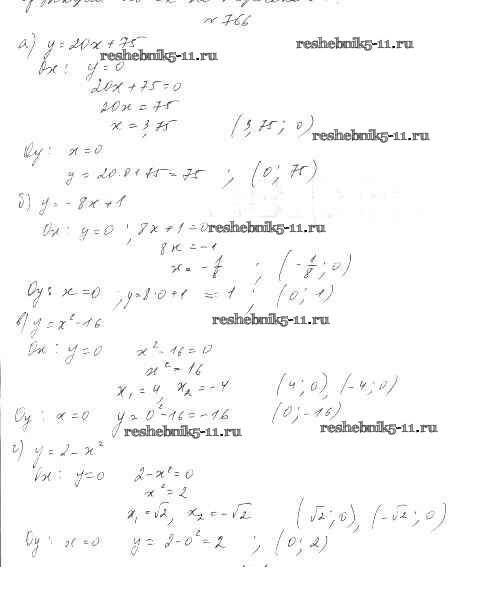 № 766
а) y=20x+75 reshebnik5-11.ru
reshebnik5-11.ru
Ox: y=0
20x+75=0
20x=75
x=3,75 (3,75; 0) reshebnik5-11.ru
Oy: x=0
y=20·0+75=75 ; (0; 75)
б) y=-8x+1
Ox: y=0 ; 8x+1=0 reshebnik5-11.ru
8x=-1
x=-1/8 ; (-1/8; 0)
Oy: x=0 ; y=8·0+1 = 1 ; (0; 1)
в) y=x²-16 reshebnik5-11.ru
Ox: y=0 x²-16=0
x²=16
x₁=4, x₂=-4 (4; 0), (-4; 0)
Oy: x=0 y=0²-16=-16 (0; -16)
reshebnik5-11.ru reshebnik5-11.ru
г) y=2-x²
Ox: y=0 2-x²=0
x²=2
x₁=√2, x₂=-√2 (√2; 0), (-√2; 0)
Oy: x=0 y=2-0²=2 ; (0; 2)